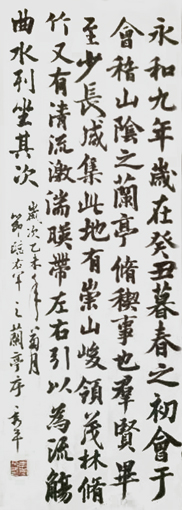 永和九年歲在癸丑暮春之初會于
會稽山陰之蘭亭脩稧事也羣賢畢
至少長咸集此地有崇山峻領茂林脩
竹又有清流激湍暎帶左右引以為流觴
曲水列坐其次
歲次乙未年菊月
節臨右軍之蘭亭序